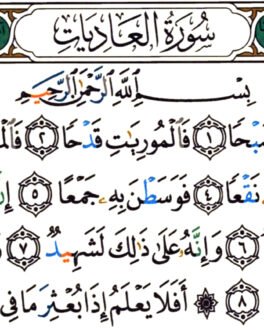 سُورَةُ العَادِيَاتِ
بِسْمِ اللَّهِ الرَّحْمَٰنِ الرَّحِيمِ
ضَبْحًا ١ فَالْمُورِيَاتِ قَدْحًا ٢
نَقْعًا ٤ فَوَسَطْنَ بِهِ جَمْعًا ٥
٦ وَإِنَّهُ عَلَى ذَٰلِكَ لَشَهِيدٌ ٧
٨ أَفَلَا يَعْلَمُ إِذَا بُعْثِرَ مَا فِي